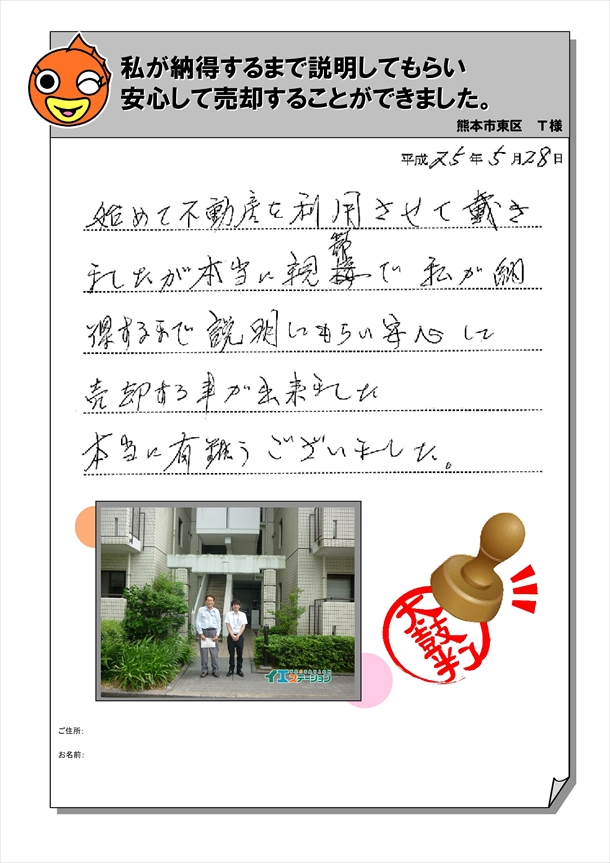 私が納得するまで説明してもらい
安心して売却することができました。
熊本市東区　T様
平成25年5月28日
始めて不動産を利用させて戴き
ましたが本当に親切で 私が納
得するまで説明してもらい安心して
売却する事が出来ました
本当に有難うございました。
イエステーション
太鼓判
ご住所:
お名前: